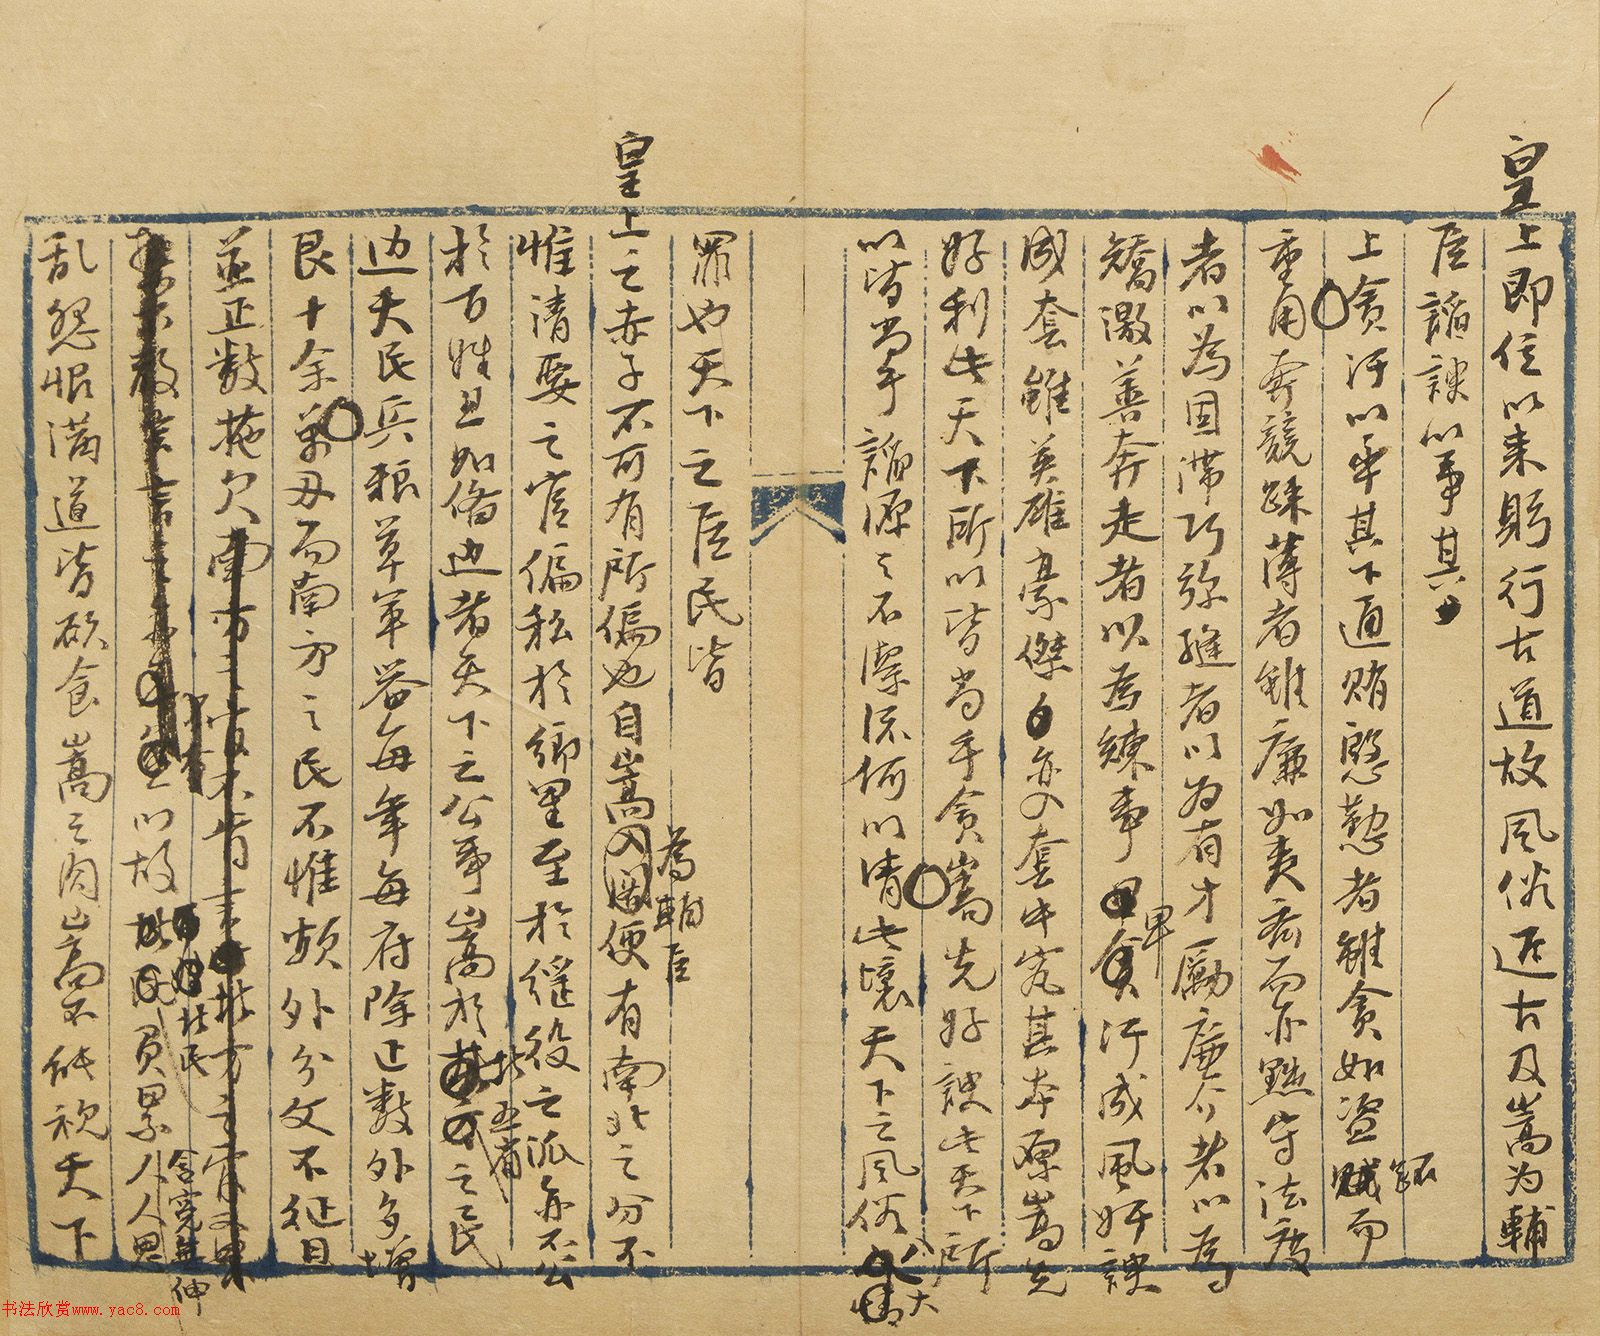 皇上即位以来躬行古道故风俗近古及嵩为輔
臣諂諛以事其
上贪汙以率其下通賄慇懃者雖贪如盗蹠而
重用奔競疎薄者雖廉如夷斉而亦黜守法度
者以为固滞巧弥縫者以为有才勵廉介者以為
矯激善奔走者以為練事卑汙成風奸諛
成套雖英雄豪傑亦入套中究其本源嵩先
好利此天下所以皆尚乎贪嵩先好諛此天下所
以皆尚乎諂源之不潔流何以清此壞天下之風俗大
罪也天下之臣民皆
為輔臣
皇上之赤子不可有所偏也自嵩入閣便有南北之分不
惟清要之官偏私於鄉里至於徭役之派亦不公
於百姓且如俻边者天下之公事嵩於北之民
边夫民兵粮草軍器每年每府除正数外多增
艮十余萬而南方之民不惟额外分文不征且
並正数拖欠南方之
以故北民負累人人思
含冤無伸
乱怨恨满道皆欲食嵩之肉嵩不能视天下
书法欣赏www.yac8.com